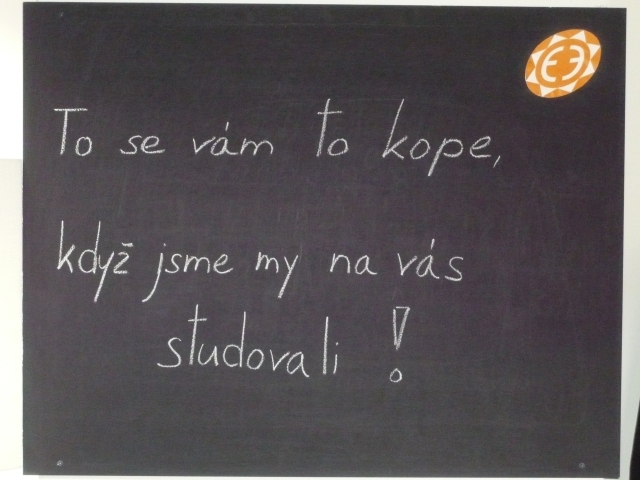 To se vám to kope,
když jsme my na vás
studovali!